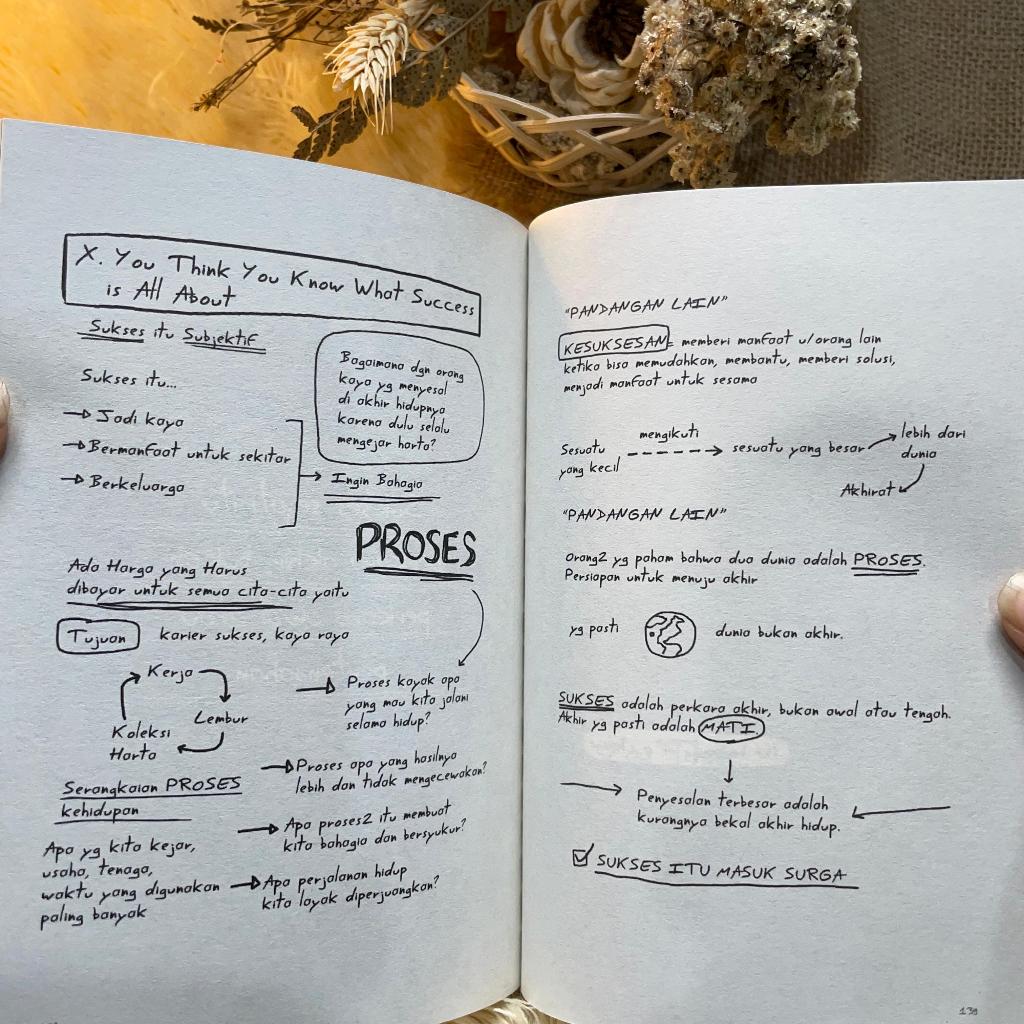 X. You Think You Know What Success
is All About
Sukses itu Subjektif
Sukses itu...
Jadi kaya
Bermanfaat untuk sekitar
Berkeluarga
Bagaimana dgn orang
kaya yg menyesal
di akhir hidupnya
karena dulu selalu
mengejar harta?
Ingin Bahagia
PROSES
Ada Harga yang Harus
dibayar untuk semua cita-cita yaitu
Tujuan karier sukses, kaya raya
Kerja
Lembur
Koleksi
Harta
Proses kayak apa
yang mau kita jalani
selama hidup?
Proses apa yang hasilnya
lebih dan tidak mengecewakan?
Serangkaian PROSES
kehidupan
Apa proses2 itu membuat
kita bahagia dan bersyukur?
Apa yg kita kejar,
usaha, tenaga,
waktu yang digunakan
paling banyak
Apa perjalanan hidup
kita layak diperjuangkan?
"PANDANGAN LAIN"
KESUKSESAN = memberi manfaat u/orang lain
ketika bisa memudahkan, membantu, memberi solusi,
menjadi manfaat untuk sesama
Sesuatu
yang kecil
mengikuti
sesuatu yang besar
lebih dari
dunia
Akhirat
"PANDANGAN LAIN"
Orang2 yg paham bahwa dua dunia adalah PROSES.
Persiapan untuk menuju akhir
yg pasti dunia bukan akhir.
SUKSES adalah perkara akhir, bukan awal atau tengah.
Akhir yg pasti adalah MATI.
Penyesalan terbesar adalah
kurangnya bekal akhir hidup.
SUKSES ITU MASUK SURGA
139